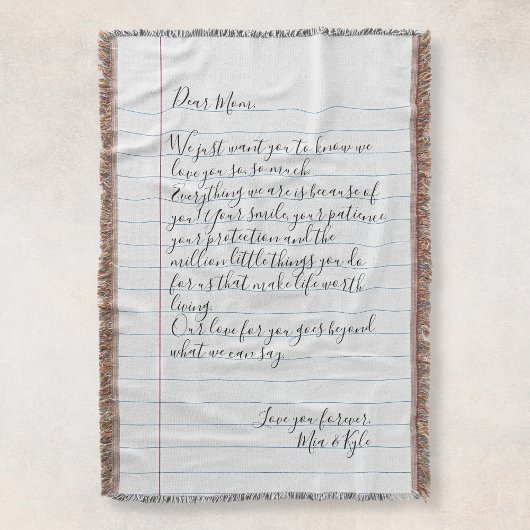 Dear Mom,
We just want you to know we
love you so, so much.
Everything we are is because of
you! Your smile, your patience,
your protection and the
million little things you do
for us that make life worth
living.
Our love for you goes beyond
what we can say.
Love you forever,
Mia & Kyle